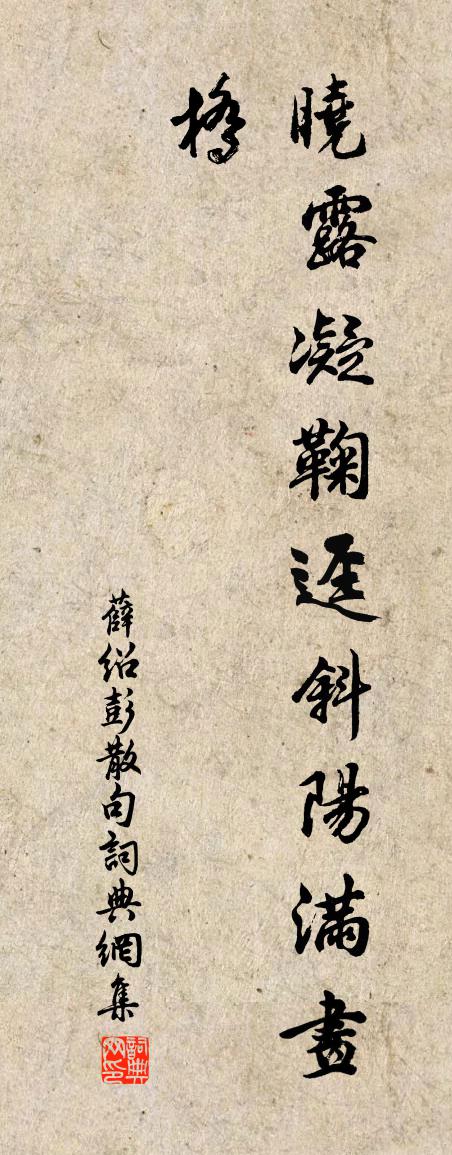 曉露凝鞠逕斜陽滿畫
橋
薛紹彭散句詞典網集
詞典
网印